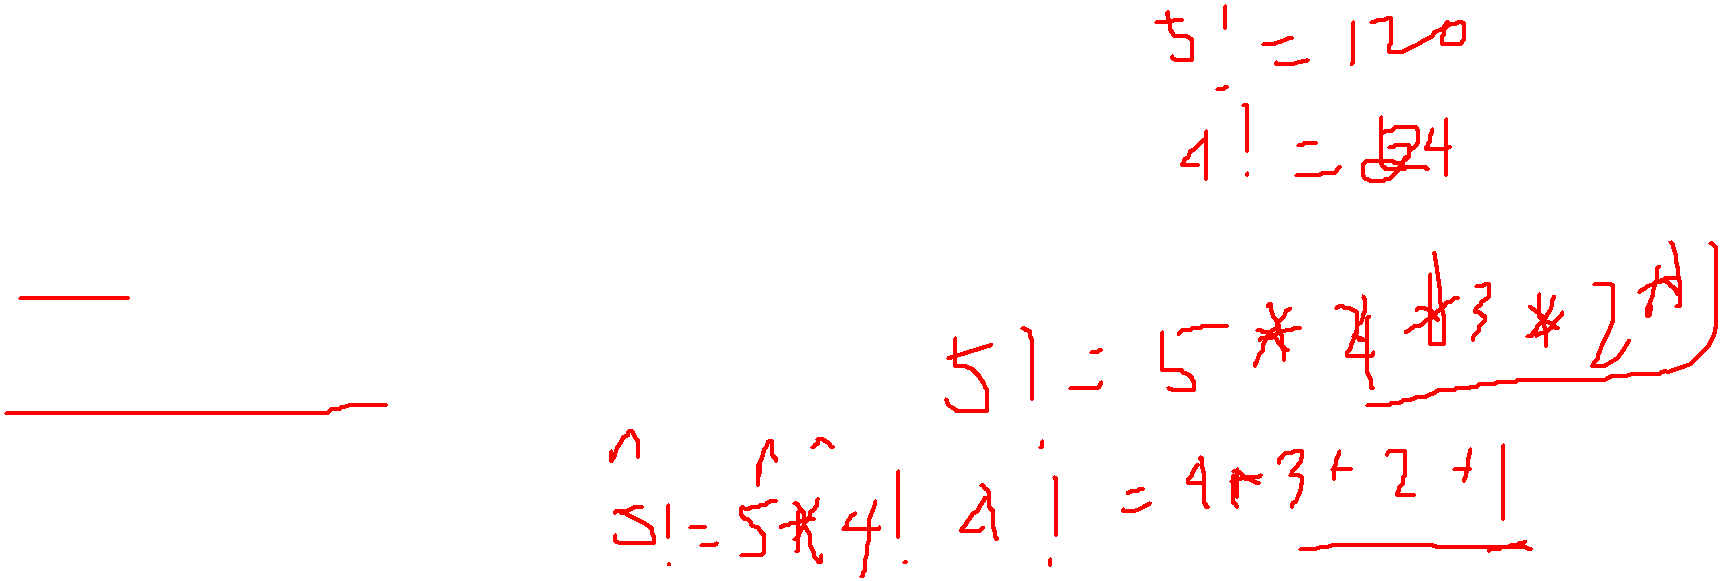 5! = 120
4! = 24
5! = 5 * 4 * 3 * 2 * 1
5! = 5 * 4! 4! = 4 * 3 + 2 + 1